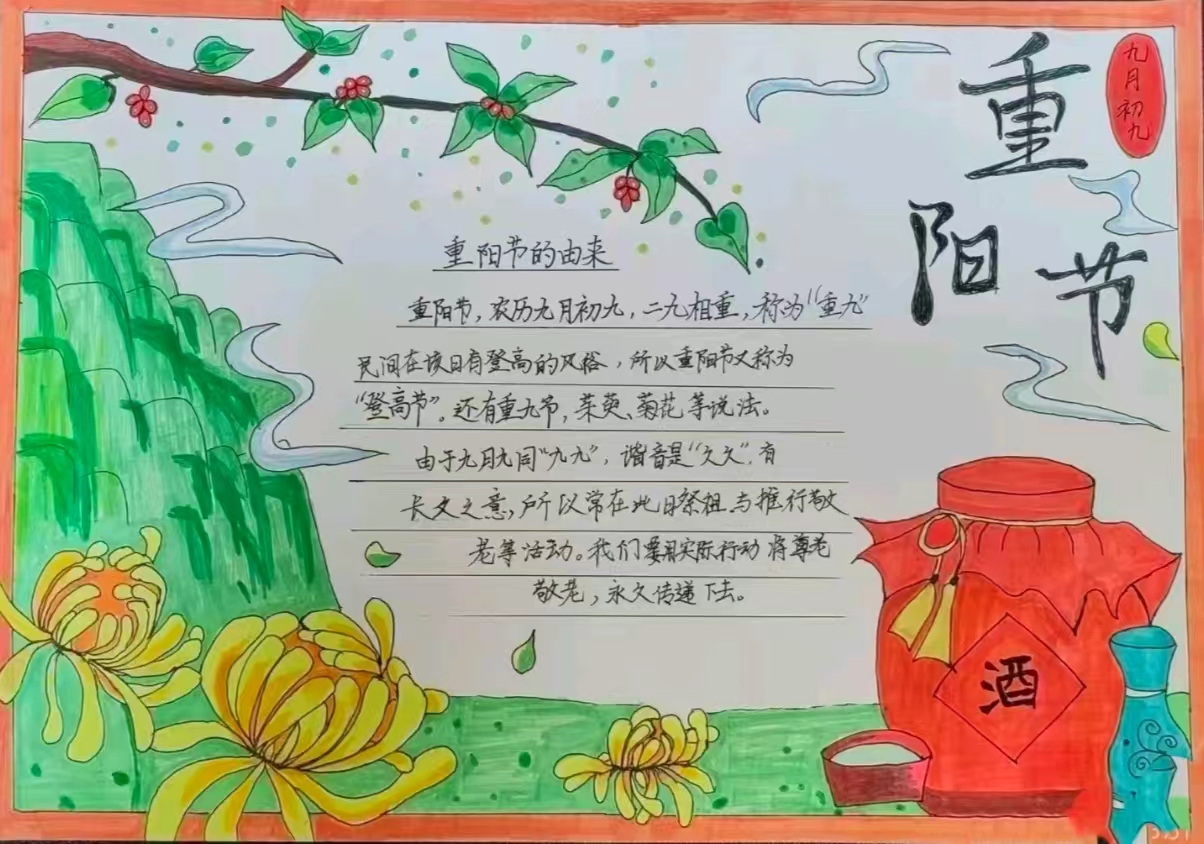 重阳节
九月初九
重阳节的由来
重阳节，农历九月初九，二九相重，称为“重九”
民间在该日有登高的风俗，所以重阳节又称为
“登高节”。还有重九节，茱萸、菊花等说法。
由于九月九同“九九”，谐音是“久久”，有
长久之意，所以常在此日祭祖与推行敬
老等活动。我们要用实际行动将尊老
敬老，永久传递下去。
酒